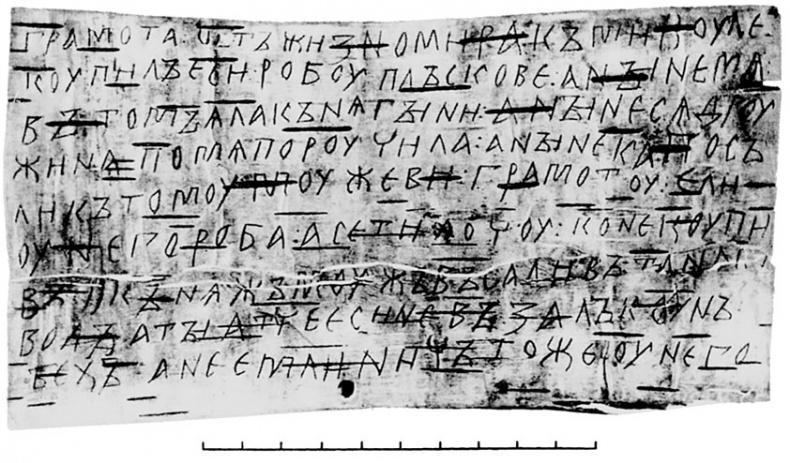 ГРАМОТА : ѠТЪ ЖИЗНОМИРА : КЪ МИКОУЛЕ :
КОУПИЛЪ ЕСИ : РОБОУ : ПЛЪСКОВЕ : А НЫНЕ МѦ :
ВЪ ТОМЪ : ѦЛА КЪНѦГЫНИ : А НЫНЕ СѦ ДРОУ
ЖИНА : ПО МѦ ПОРОУЧИЛА : А НЫНЕ КА : ПОСЪ
ЛИ КЪ ТОМОУ : МОУЖЕВИ : ГРАМОТОУ : ЕЛИ
ОУ НЕГО РОБА : А СЕ ТИ ХОЧОУ : КОНЕ КОУПИ
ВЪ : И КЪНѦЖЪ МОУЖЪ ВЪСАДИВЪ ТА НА
ВОДЫ : А ТЫ АТЧЕ ЕСИ НЕ ВЪЗАЛЪ КОУНЪ :
ТЕХЪ : А НЕ ЕМЛИ : НИЧЪТО ЖЕ ОУ НЕГО :